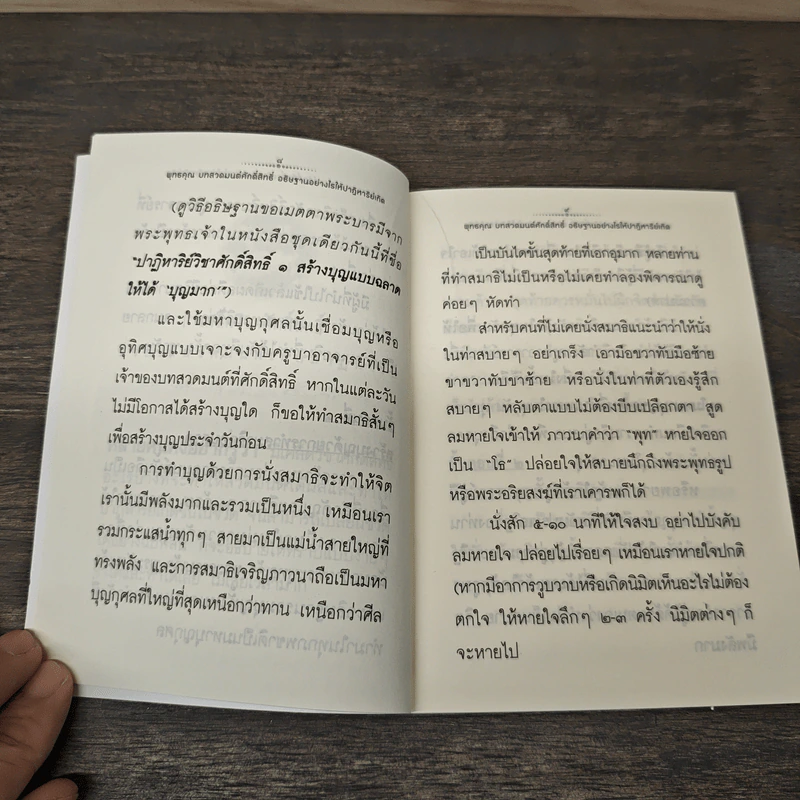 พุทธคุณ บทสวดมนต์ศักดิ์สิทธิ์ อธิษฐานอย่างไรให้ปาฏิหาริย์เกิด
(ดูวิธีอธิษฐานขอเมตตาพระบารมีจาก
พระพุทธเจ้าในหนังสือชุดเดียวกันนี้ที่ชื่อ
"ปาฏิหาริย์วิชาศักดิ์สิทธิ์ ๑ สร้างบุญแบบฉลาด
ให้ได้ "บุญมาก"")
และใช้มหาบุญกุศลนั้นเชื่อมบุญหรือ
อุทิศบุญแบบเจาะจงกับครูบาอาจารย์ที่เป็น
เจ้าของบทสวดมนต์ที่ศักดิ์สิทธิ์ หากในแต่ละวัน
ไม่มีโอกาสได้สร้างบุญใด ก็ขอให้ทำสมาธิสั้นๆ
เพื่อสร้างบุญประจำวันก่อน
การทำบุญด้วยการนั่งสมาธิจะทำให้จิต
เรานั้นมีพลังมากและรวมเป็นหนึ่ง เหมือนเรา
รวมกระแสน้ำทุกๆ สายมาเป็นแม่น้ำสายใหญ่ที่
ทรงพลัง และการสมาธิเจริญภาวนาถือเป็นมหา
บุญกุศลที่ใหญ่ที่สุดเหนือกว่าทาน เหนือกว่าศีล
พุทธคุณ บทสวดมนต์ศักดิ์สิทธิ์ อธิษฐานอย่างไรให้ปาฏิหาริย์เกิด
เป็นบันไดขั้นสุดท้ายที่เอกอุมาก หลายท่าน
ที่ทำสมาธิไม่เป็นหรือไม่เคยทำลองพิจารณาดู
ค่อยๆ หัดทำ
สำหรับคนที่ไม่เคยนั่งสมาธิแนะนำว่าให้นั่ง
ในท่าสบายๆ อย่าเกร็ง เอามือขวาทับมือซ้าย
ขาขวาทับขาซ้าย หรือนั่งในท่าที่ตัวเองรู้สึก
สบายๆ หลับตาแบบไม่ต้องบีบเปลือกตา สูด
ลมหายใจเข้าให้ ภาวนาคำว่า "พุท" หายใจออก
เป็น "โธ" ปล่อยใจให้สบายนึกถึงพระพุทธรูป
หรือพระอริยสงฆ์ที่เราเคารพก็ได้
นั่งสัก ๕-๑๐ นาทีให้ใจสงบ อย่าไปบังคับ
ลมหายใจ ปล่อยไปเรื่อยๆ เหมือนเราหายใจปกติ
(หากมีอาการวูบวาบหรือเกิดนิมิตเห็นอะไรไม่ต้อง
ตกใจ ให้หายใจลึกๆ ๒-๓ ครั้ง นิมิตต่างๆ ก็
จะหายไป